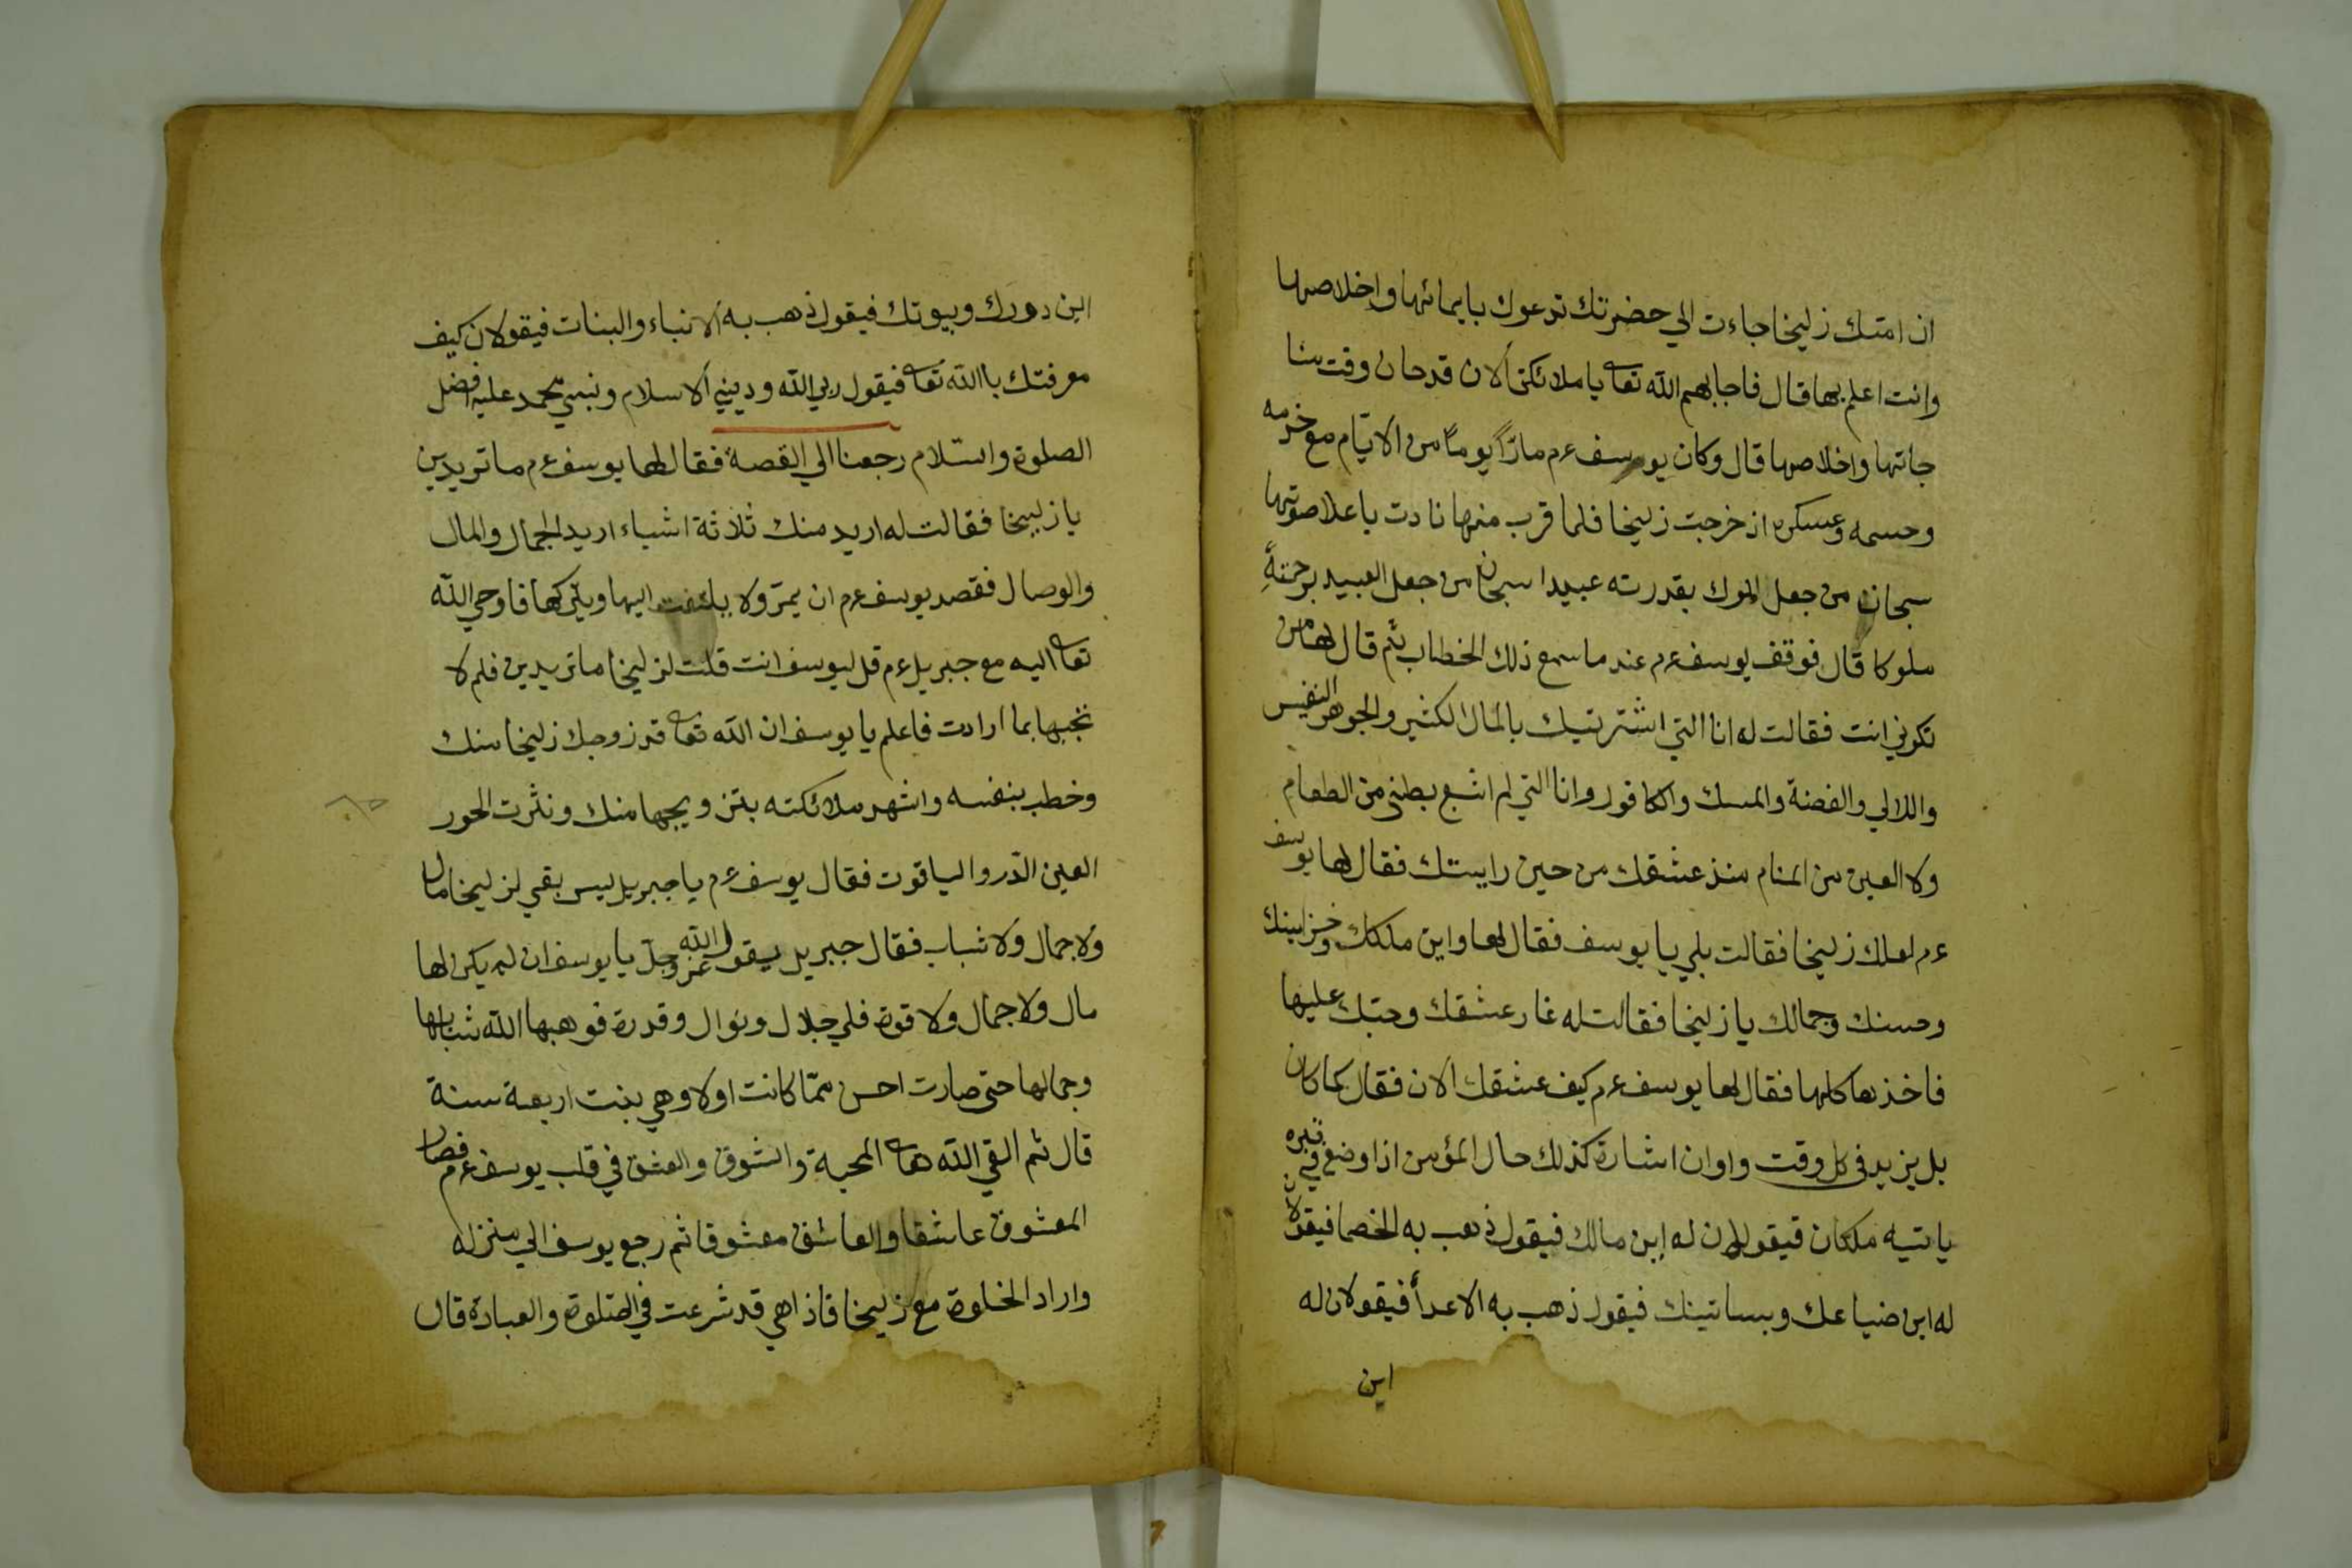 ان امتك زليخا جاءت الي حضرتك تدعوك بايمانها واخلاصها
وانت اعلم بها قال فاجابهم الله تعا يا ملائكتي الان قد حان وقت
جاتها واخلاصها قال وكان يوسف ءم مارًّا يوما من الايّام مع خدمه
وحسمه وعسكره اذ خرجت زليخا فلما قرب منها نادت باعلا صوتها
سبحان من جعل الملوك بقدرته عبيدا سبحان من جعل العبيد برحمته
ملوكا قال فوقف يوسف ءم عند ما سمع ذلك الخطاب ثم قال لها من
تكوني انت فقالت له انا التي اشتريتك بالمال الكثير والجوهر النفيس
واللالي والفضة والمسك والكافور وانا التي لم اشبع بطني من الطعام
ولا العين من المنام منذ عشقك من حين رايتك فقال لها يوسف
ءم لعلك زليخا فقالت بلي يا يوسف فقال لها واين ملكك وخزاينك
وحسنك وجمالك يا زليخا فقالت له غار عشقك وحبك عليها
فاخذها كلها فقال لها يوسف ءم كيف عشقك الان فقال كما كان
بل يزيد في كل وقت واوان اشارة كذلك حال المؤمن اذا وضع في قبره
ياتيه ملكان فيقولان له اين مالك فيقول ذهب به الخصما فيقولان
له اين ضياعك وبساتينك فيقول ذهب به الاعدأ فيقولان له
اين
اين دورك وبيوتك فيقول ذهب به الانباء والبنات فيقولان كيف
معرفتك باالله تعا فيقول ربي الله وديني الاسلام ونبيي محمد عليه افضل
الصلوة والسلام رجعنا الي القصة فقال لها يوسف ءم ما تريدين
يا زليخا فقالت له اريد منك ثلاثة اشياء اريد الجمال والمال
والوصال فقصد يوسف ءم ان يمرّ ولا يلتفت اليها ويتركها فاوحي الله
تعا اليه مع جبريل ءم قل ليوسف انت قلت لزليخا ما تريدين فلم لا
تجبها بما ارادت فاعلم يا يوسف ان الله تعا قد زوجك زليخا منك
وخطب بنفسه واشهد ملائكته بتزويجها منك ونثرت الحور
العين الدّر والياقوت فقال يوسف ءم يا جبريل ليس بقي لزليخا مال
ولا جمال ولا شباب فقال جبريل يقول الله عزوجلّ يا يوسف ان لم يكن لها
مال ولا جمال ولا قوة فلي جلال ونوال وقدرة فوهبها الله شبابها
وجمالها حتى صارت احسن ممّا كانت اولا وهي بنت اربعة سنة
قال ثم القي الله تعا المحبة والشوق والعشق في قلب يوسف ءم فصار
المعشوق عاشقا والعاشق معشوقا ثم رجع يوسف الي منزله
واراد الخلوة مع زليخا فاذا هي قد شرعت في الصّلوة والعبادة قال